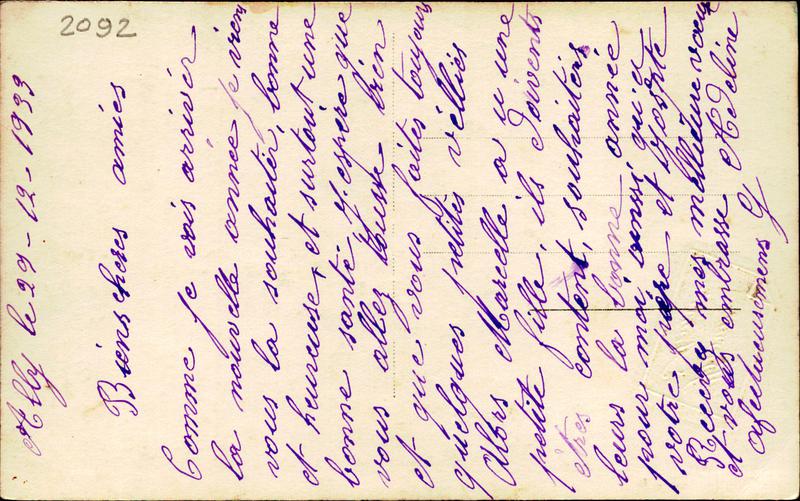 2092
Ally le 29-12-1933
Bien chères amies
Comme je vois arriver
la nouvelle année je viens
vous la souhaiter, bonne
et heureuse, et surtout une
bonne santé. J'espère que
vous allez tousse bien
et que vous faites toujours
quelques petites vellies
Alors Marcelle a u une
petite fille, ils doivents
êtres content, souhaiters
leurs la bonne année
pour moi aussi qu'a
votre frère et
Recevez mes meilleure voeux
et vous embrasse Adeline
afectueusemens G